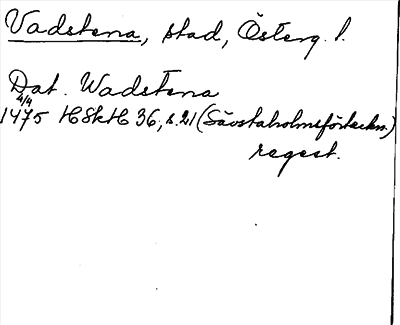 Vadstena, stad, Österg. l.
Dat. Wadstena
4/4
1475 HSkH 36, s. 21 (Sävstaholmsförteckn.)
regest.